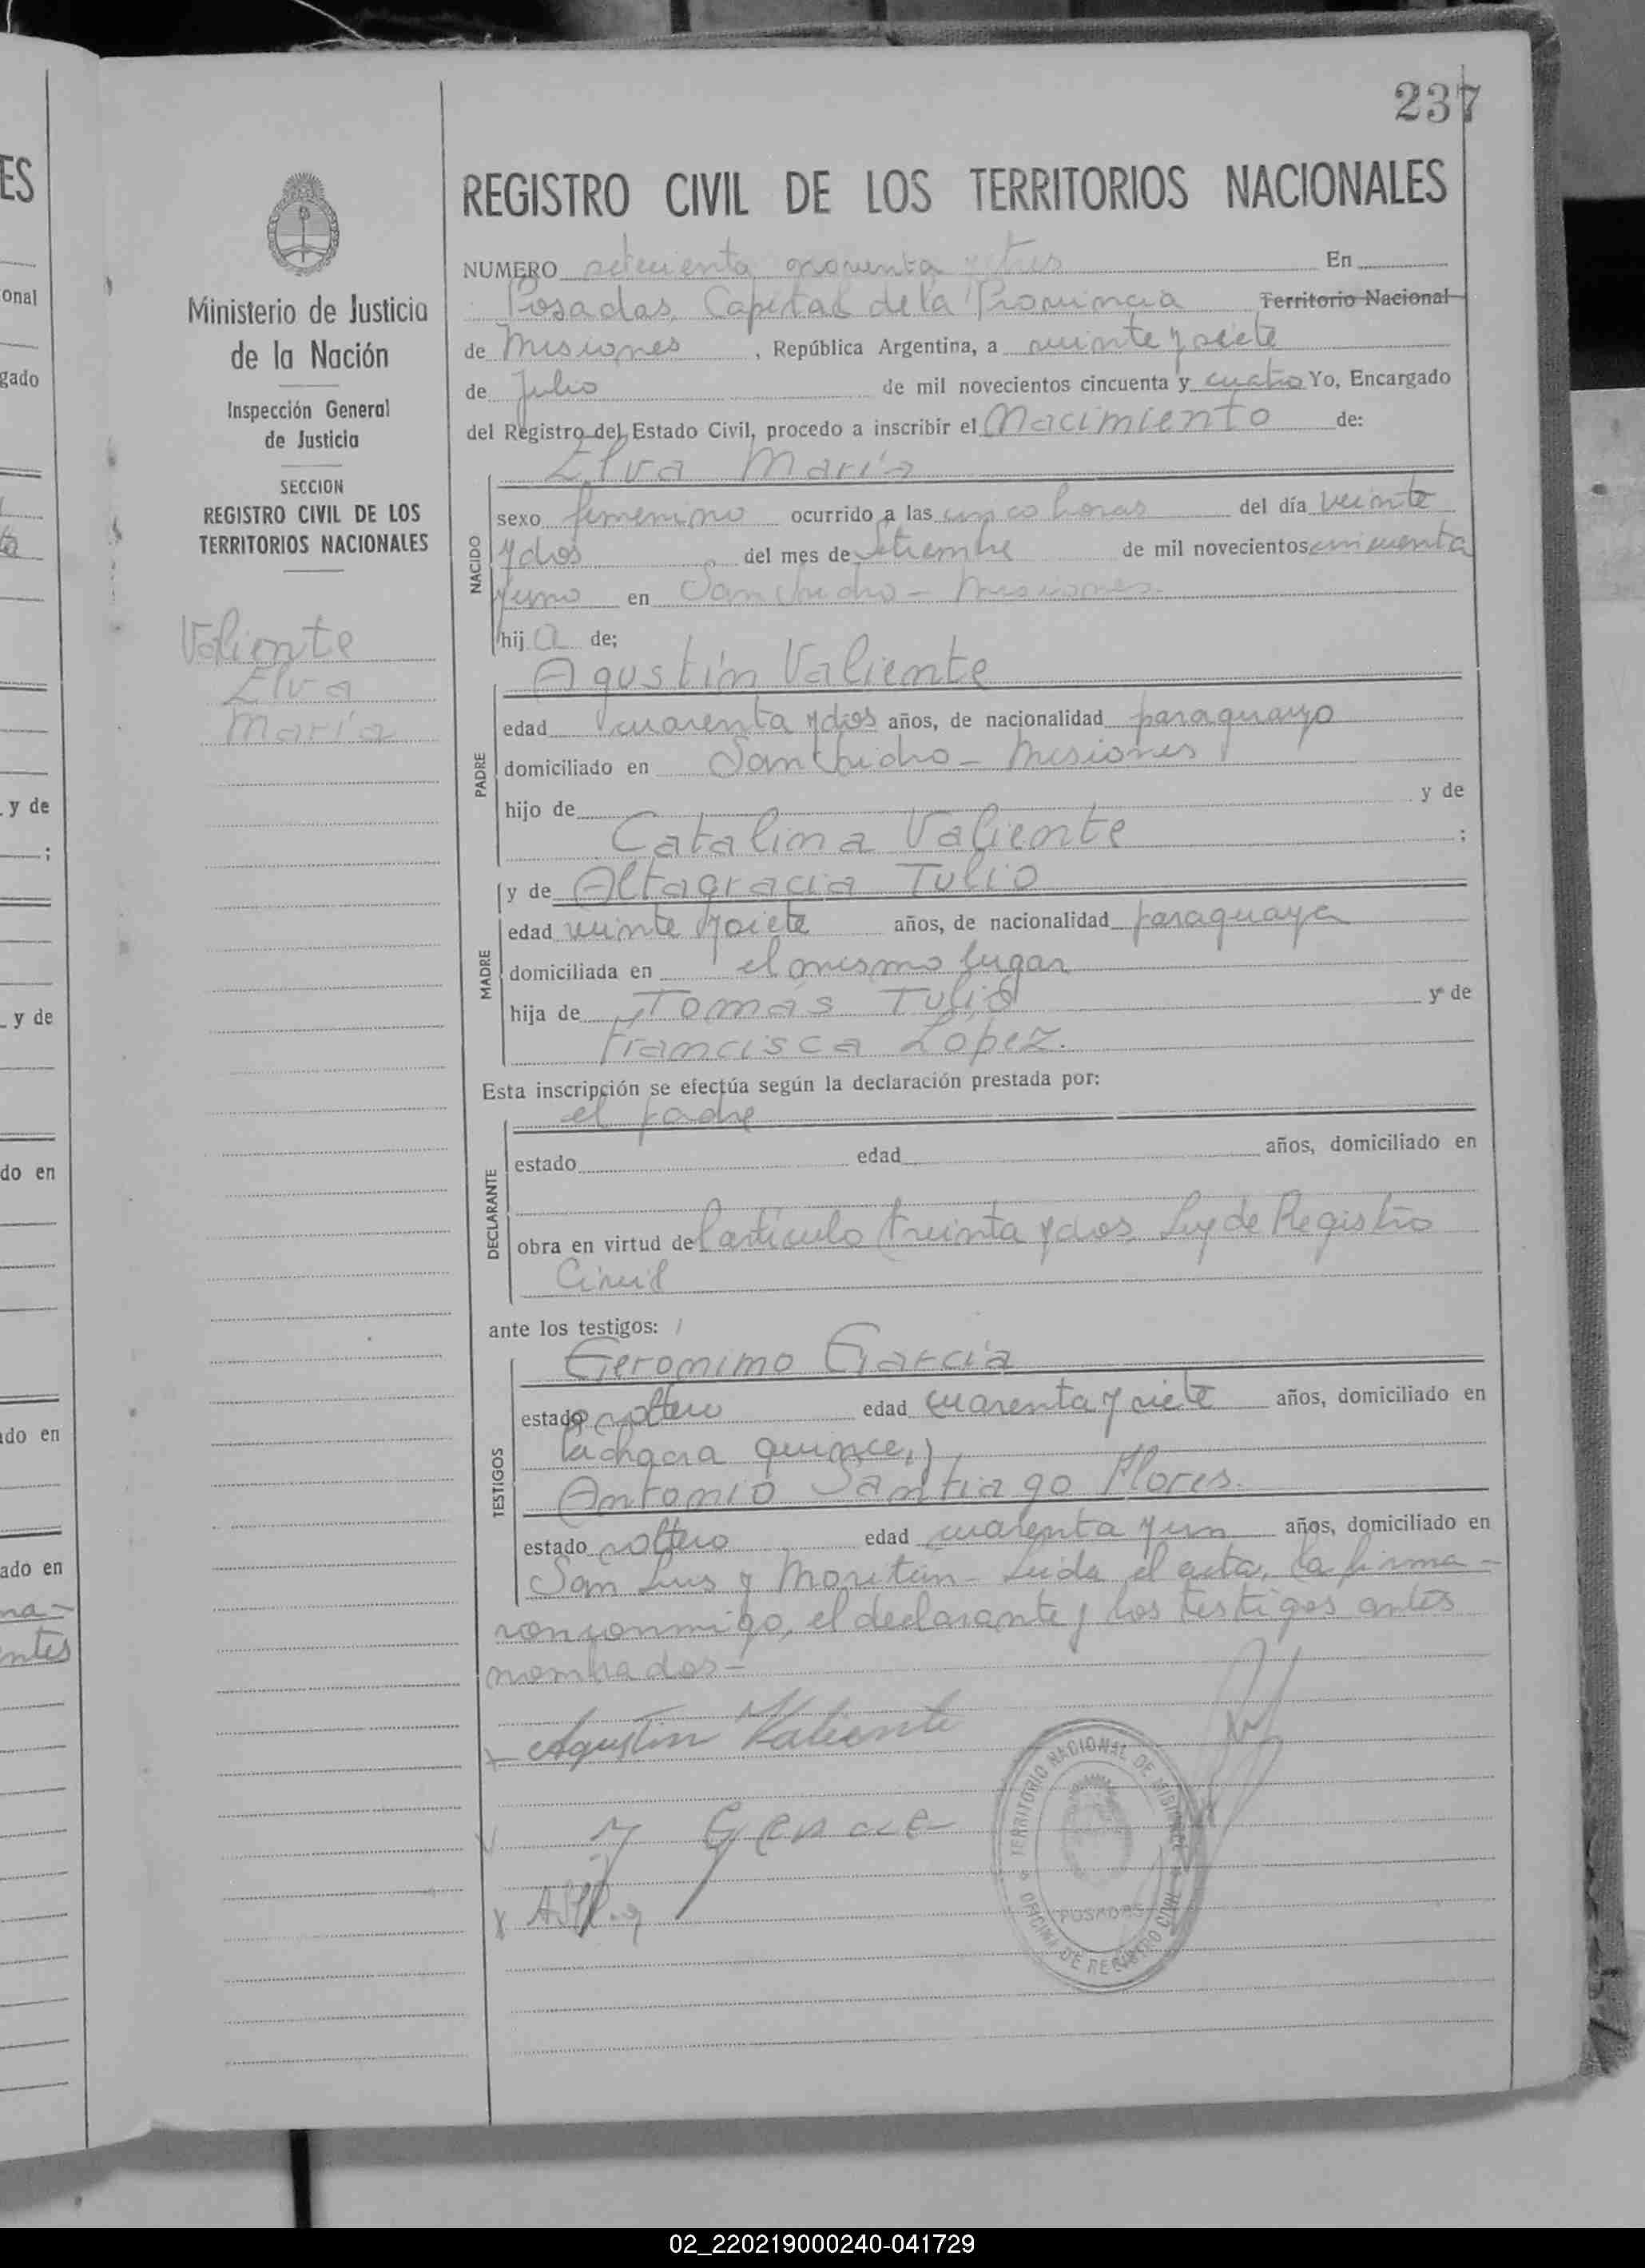 237
ES
onal
gado
y de
;
y de
do en
do en
ado en
na-
ntes
Ministerio de Justicia
de la Nación
Inspección General
de Justicia
SECCION
REGISTRO CIVIL DE LOS
TERRITORIOS NACIONALES
Valiente
Elva
María
REGISTRO CIVIL DE LOS TERRITORIOS NACIONALES
NUMERO setecienta noventa y tres En
Posadas, Capital de la Provincia Territorio Nacional
de Misiones, República Argentina, a veinte y siete
de Julio de mil novecientos cincuenta y cuatro Yo, Encargado
del Registro del Estado Civil, procedo a inscribir el Nacimiento de:
Elva María
NACIDO
sexo femenino ocurrido a las cinco horas del día veinte
y dos del mes de Setiembre de mil novecientos cincuenta
y uno en San Isidro - Misiones.
hij a de;
Agustín Valiente
PADRE
edad cuarenta y dos años, de nacionalidad paraguayo
domiciliado en San Isidro - Misiones
hijo de y de
Catalina Valiente ;
y de Altagracia Tulio
MADRE
edad veinte y siete años, de nacionalidad paraguaya
domiciliada en el mismo lugar
hija de Tomás Tulio y de
Francisca López.
Esta inscripción se efectúa según la declaración prestada por:
el padre
DECLARANTE
estado edad años, domiciliado en
obra en virtud del artículo treinta y dos, Ley de Registro
Civil
ante los testigos:
Geronimo Garcia
TESTIGOS
estado soltero edad cuarenta y siete años, domiciliado en
la chacra quince,
Antonio Santiago Flores.
estado soltero edad cuarenta y un años, domiciliado en
San Luis y Moritán - Leida el acta, la firma-
ron conmigo, el declarante y los testigos antes
nombrados-
Agustin Valiente
TERRITORIO NACIONAL DE MISIONES
OFICINA DE REGISTRO CIVIL
POSADAS
02_220219000240-041729